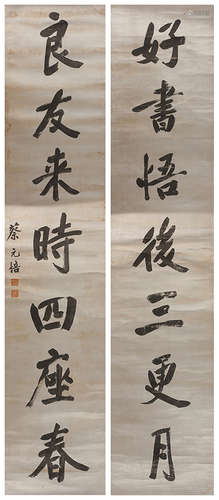 好書悟後三更月
良友来時四座春
蔡元培